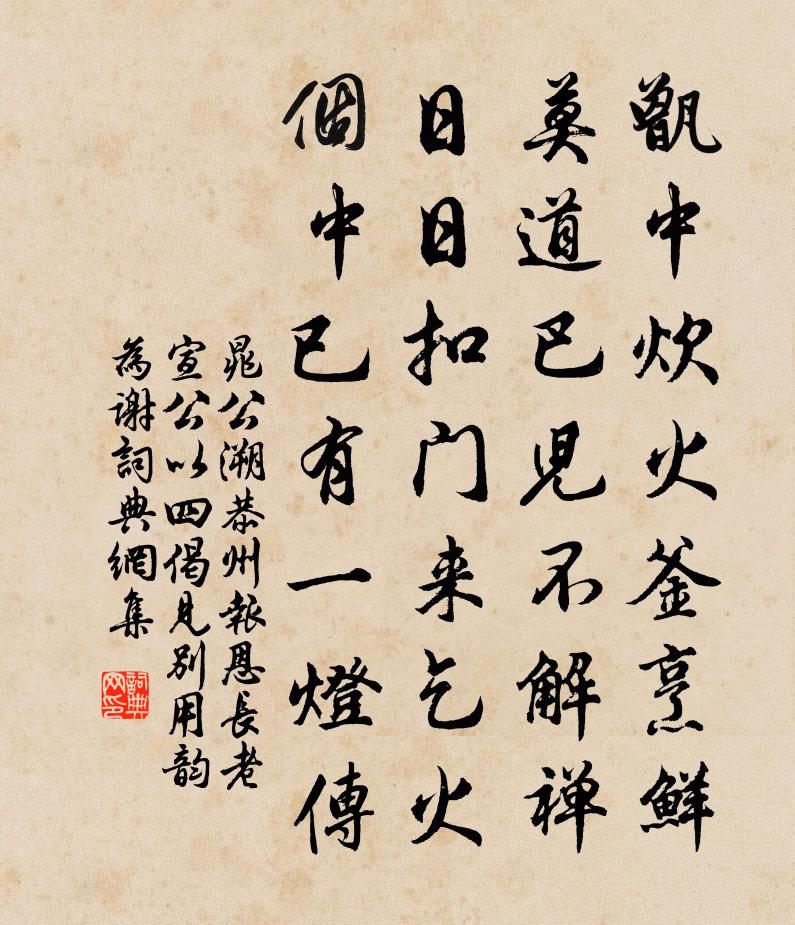 甑中炊火釜烹鮮
莫道巴児不解禅
日日扣门来乞火
個中已有一燈傳
晁公溯恭州報恩長老
宣公以四偈見別用韵
為谢詞典網集
詞典网印